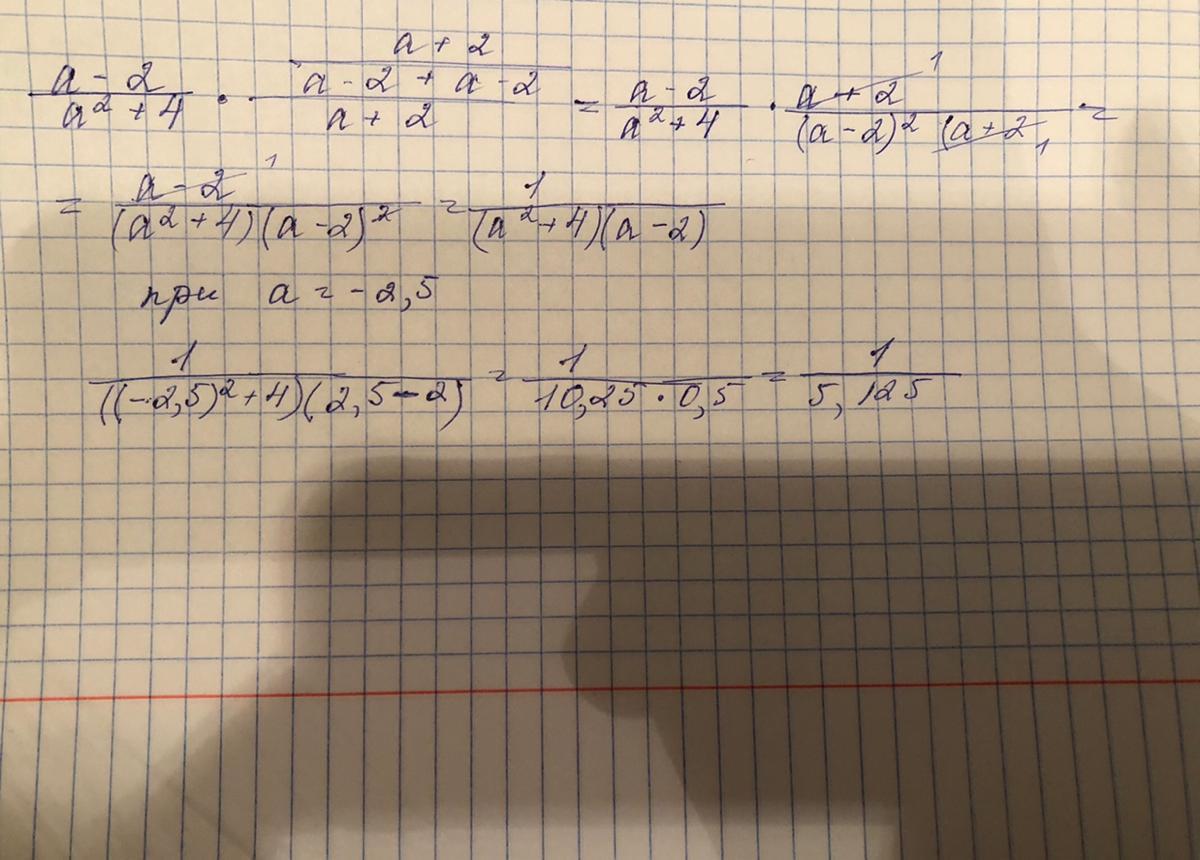 (a - 2)/(a² + 4) · ((a + 2)/(a - 2 + a - 2))/(a + 2) = (a - 2)/(a² + 4) · (a + 2)¹/((a - 2)² (a + 2 ₁ =
= (a - 2)¹/((a² + 4)(a - 2)²) = 1/((a² + 4)(a - 2))
при a = - 2,5
1/(((-2,5)² + 4)(2,5 - 2)) = 1/(10,25 · 0,5) = 1/(5,125)